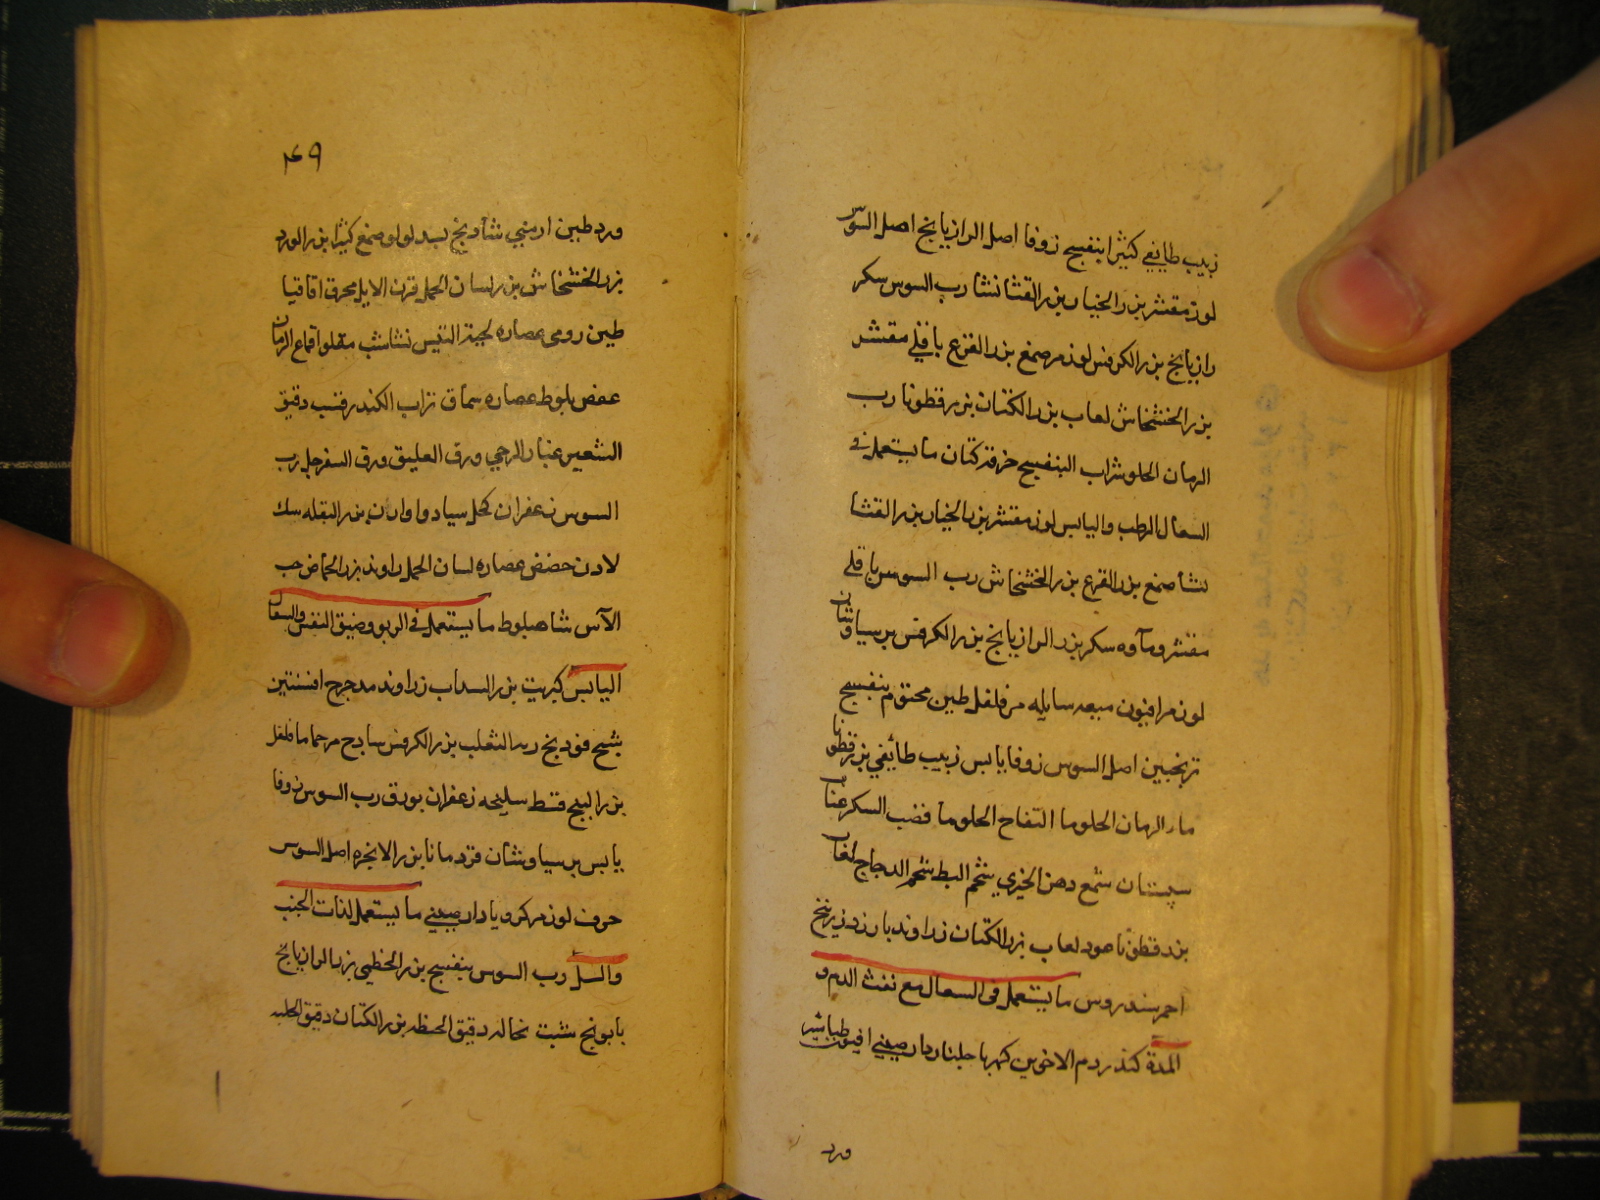 زبيب طايفي كثيرا بنفسج زوفا اصل الرازيانج اصل السوس
لوز مقشر بزر الخيار بزر القثا نشا رب السوس سكر
رازيانج بزر الكرفس لوز مر صمغ بزر القرع باقلي مقشر
بزر الخشخاش لعاب بزر الكتان بزر قطونا رب
الرمان الحلو شراب البنفسج خرقه كتان ما يستعمل في
السعال الرطب واليابس لوز مقشر بزر الخيار بزر القثا
نشا صمغ بزر القرع بزر الخشخاش رب السوس باقلي
مقشر وماوه سكر بزر الرازيانج بزر الكرفس برسياوشان
لوز مر افيون ميعه سايله مر فلفل طين مختوم بنفسج
ترنجبين اصل السوس زوفا يابس زبيب طائفي بزر قطونا
ما الرمان الحلو ما التفاح الحلو ما قضب السكر عناب
سپستان شمع دهن الخيري شحم البط شحم الدجاج لعاب
بزر قطونا لعاب بزر الكتان زراوند بارزد زرنيخ
احمر سندروس ما يستعمل في السعال مع نفث الدم و
المدة كندر دم الاخوين كهربا جلنار دار صيني افيون طباشير
ورد
٤٩
ورد طين ارمني شادنج بسد لولو صمغ كثيرا بزر الورد
بزر الخشخاش بزر لسان الحمل قرن الايل محرق اقاقيا
طين رومى عصاره لحية التيس نشاشب مقلو اقماع الرمان
عفص بلوط عصاره سماق تراب الكندر قنب دقيق
الشعير غبار الرحي ورق العليق ورق السفرجل رب
السوس زعفران كحل سيادوا وارن بزر البقله سك
لادن حضض عصاره لسان الحمل راوند بزر الحماض حب
الآس شاهبلوط ما يستعمل في الربو وضيق النفس والسعال
اليابس كبريت بزر السداب زراوند مدحرج افسنتين
شيح فودنج ريه الثعلب بزر الكرفس سادج مر حماما فلفل
بزر البنج قسط سليخه زعفران بورق رب السوس زوفا
يابس برسياوشان قردمانا بزر الانجره اصل السوس
حرف لوز مر كرويا دار صيني ما يستعمل لذات الجنب
والسل رب السوس بنفسج بزر الخطمي بزر الرازيانج
بابونج شبت نخاله دقيق الحنطه بزر الكتان دقيق الحلبه